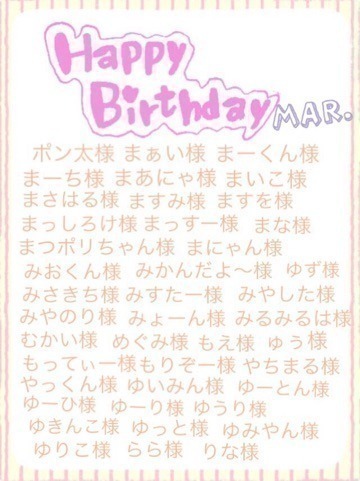 Happy
Birthday MAR.
ポン太様 まぁい様 まーくん様
まーち様 まあにゃ様 まいこ様
まさはる様 ますみ様 ますを様
まっしろけ様 まっすー様 まな様
まつポリちゃん様 まにゃん様
みおくん様 みかんだよ〜様 ゆず様
みさきち様 みすたー様 みやした様
みやのり様 みょーん様 みるみるは様
むかい様 めぐみ様 もえ様 ゆぅ様
もってぃー様 もりぞー様 やちまる様
やっくん様 ゆいみん様 ゆーとん様
ゆーひ様 ゆーり様 ゆうり様
ゆきんこ様 ゆっと様 ゆみやん様
ゆりこ様 らら様 りな様